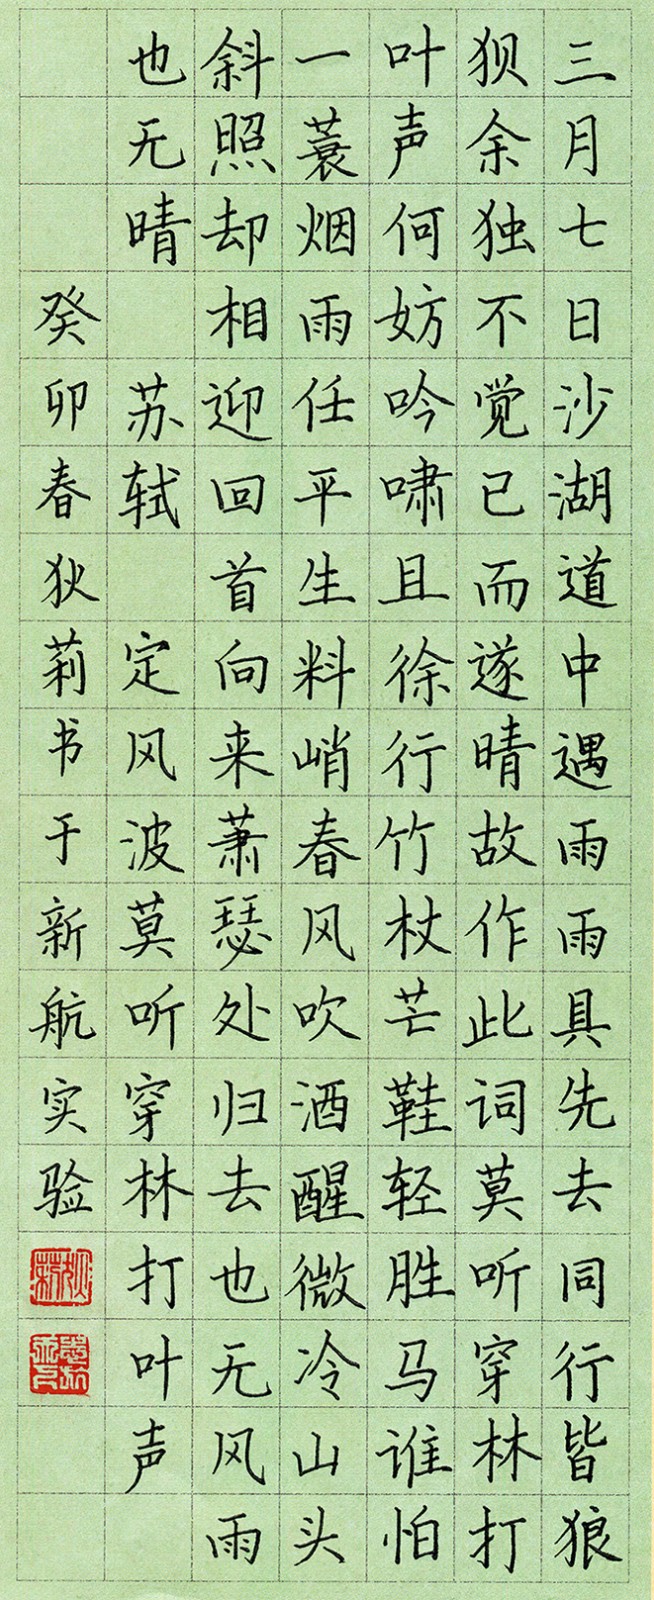 三月七日沙湖道中遇雨雨具先去同行皆狼
狈余独不觉已而遂晴故作此词莫听穿林打
叶声何妨吟啸且徐行竹杖芒鞋轻胜马谁怕
一蓑烟雨任平生料峭春风吹酒醒微冷山头
斜照却相迎回首向来萧瑟处归去也无风雨
也无晴 苏轼 定风波莫听穿林打叶声
癸卯春狄莉书于新航实验